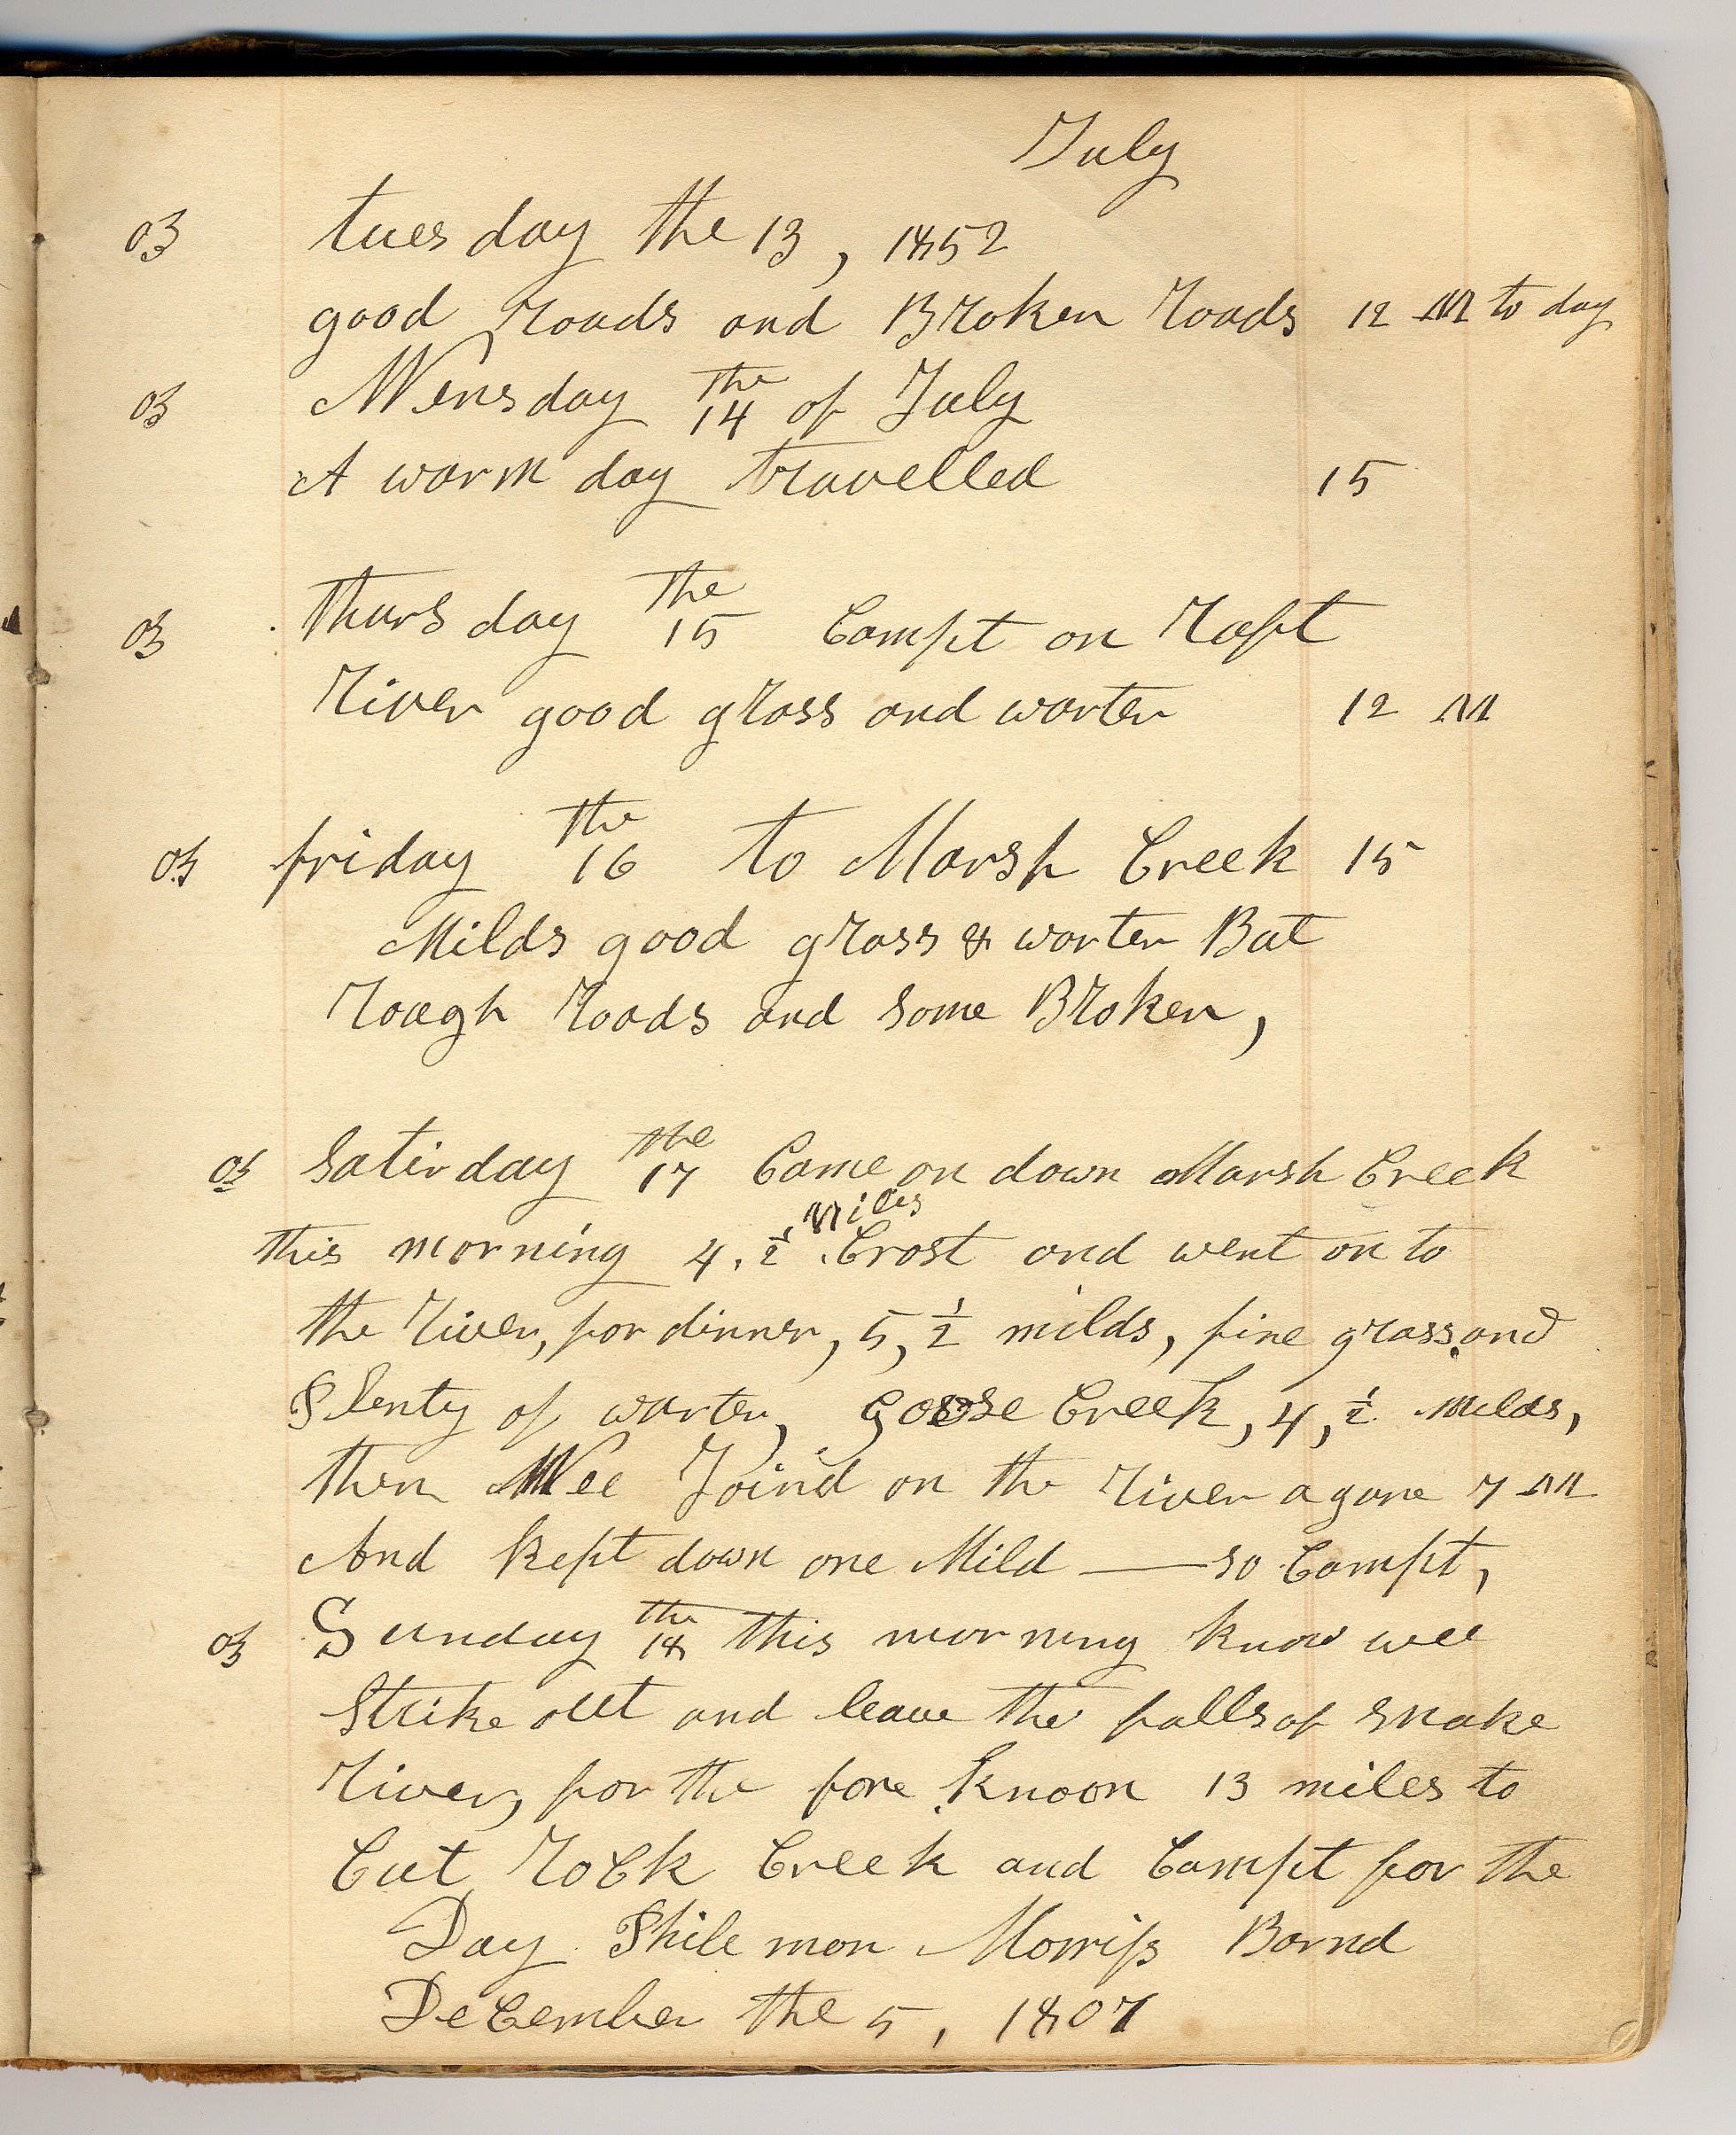 July
03 tuesday the 13, 1852
good roads and Broken roads 12 M to day
03 Wensday the 14 of July
A warm day travelled 15
03 Thursday the 15 Campt on Raft
River good grass and warter 12 M
03 friday the 16 to Marsh Creek 15
Milds good grass & warter But
Rough Roads and some Broken,
03 Saturday the 17 Came on down Marsh Creek
this morning 4, 1/2 Miles Crost and went on to
the River, for dinner, 5, 1/2 milds, fine grass and
Plenty of warter, goose Creek, 4, 1/2 milds,
then Wee Joind on the River agane 7 M
And kept down one Mild — so Campt,
03 Sunday the 18 this morning know wee
Strike out and leave the falls of snake
River, for the fore knoon 13 miles to
Cut Rock Creek and Campt for the
Day Philemon Morriss Bornd
December the 5, 1807